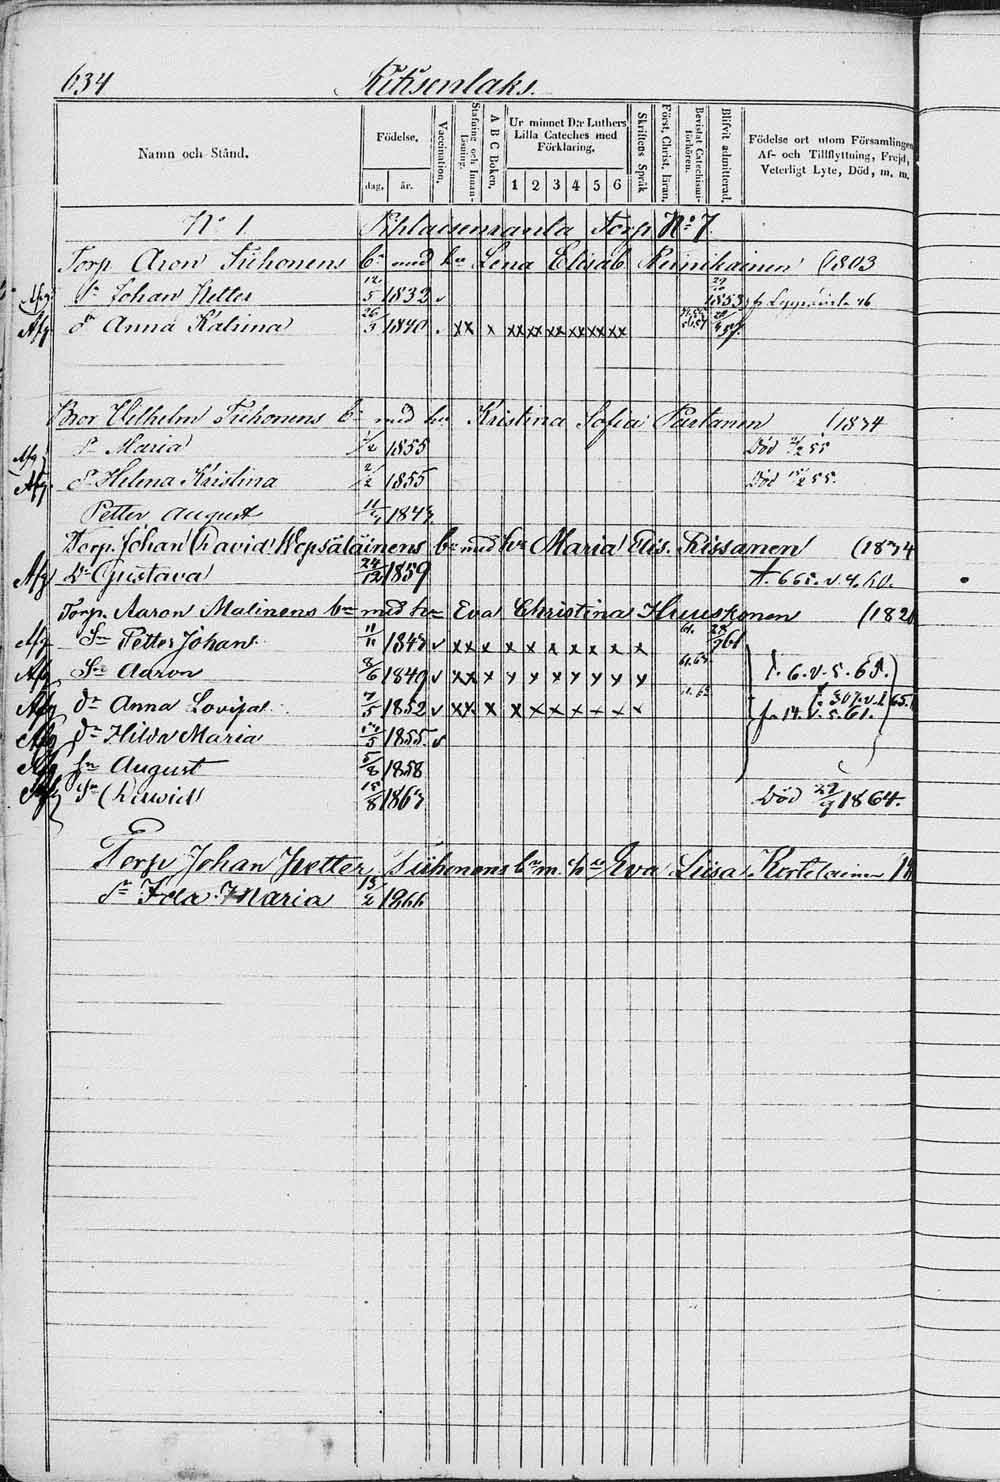 634 Kiksenlaks.
Namn och Stånd. Födelse. dag. år. Vaccination. Stafning och Innanläsning. A B C Boken. Ur minnet D:r Luthers Lilla Cateches med Förklaring. 1 2 3 4 5 6 Skriftens Språk Först, Christ. läran. Bevistat Catechismi-förhören. Blifvit admitterad. Födelse ort utom Församlingen, Af- och Tillflyttning, Frejd, Veterligt Lyte, Död, m. m.
No 1 Torp No 7
Torp. Aron Tiihonens bn med hu Lena Elisab. Reinikainen (1803
Afg Sn Johan Petter 12/5 1832 v 1853 fr
Afg dr Anna Katrina 26/5 1840 . xx x xx xx xx xx xx xx
Bror Wilhelm Tiihonens bn med hu Kristina Sofia Partanen (1834
Afg Dr Maria 1/2 1855 Död 2/2 55
Afg Dr Helena Kristina 2/2 1855 Död 15/2 55.
Petter August 1843
Torp. Johan David Wepsäläinens bn med hu Maria Elis. Kissanen (1834
Afg Dr Gustava 24/12 1859 t. 665. v. 4. 60.
Torp. Aaron Malinens bn med hu Eva Christina Huuskonen (182
Afg Sn Petter Johan 11/11 1847 v xx x x x x x x x 61. 28/9 61
Afg Sn Aaron 8/6 1849 v xx x x x x x x x t. 6. v. 5. 65.
Afg dr Anna Lovisa 7/5 1852 v xx x x x x x x x f. 307. v. 1 65. fr 14. v. 5. 61.
Afg dr Hilda Maria 1855. v
Afg Sn August 5/8 1858
Afg Sn 15/8 1863 Död 29/9 1864.
Torp Johan Petter Tiihonens bn m. hu Eva Liisa Kortelainen 18
Dr Ida Maria 13/2 1866